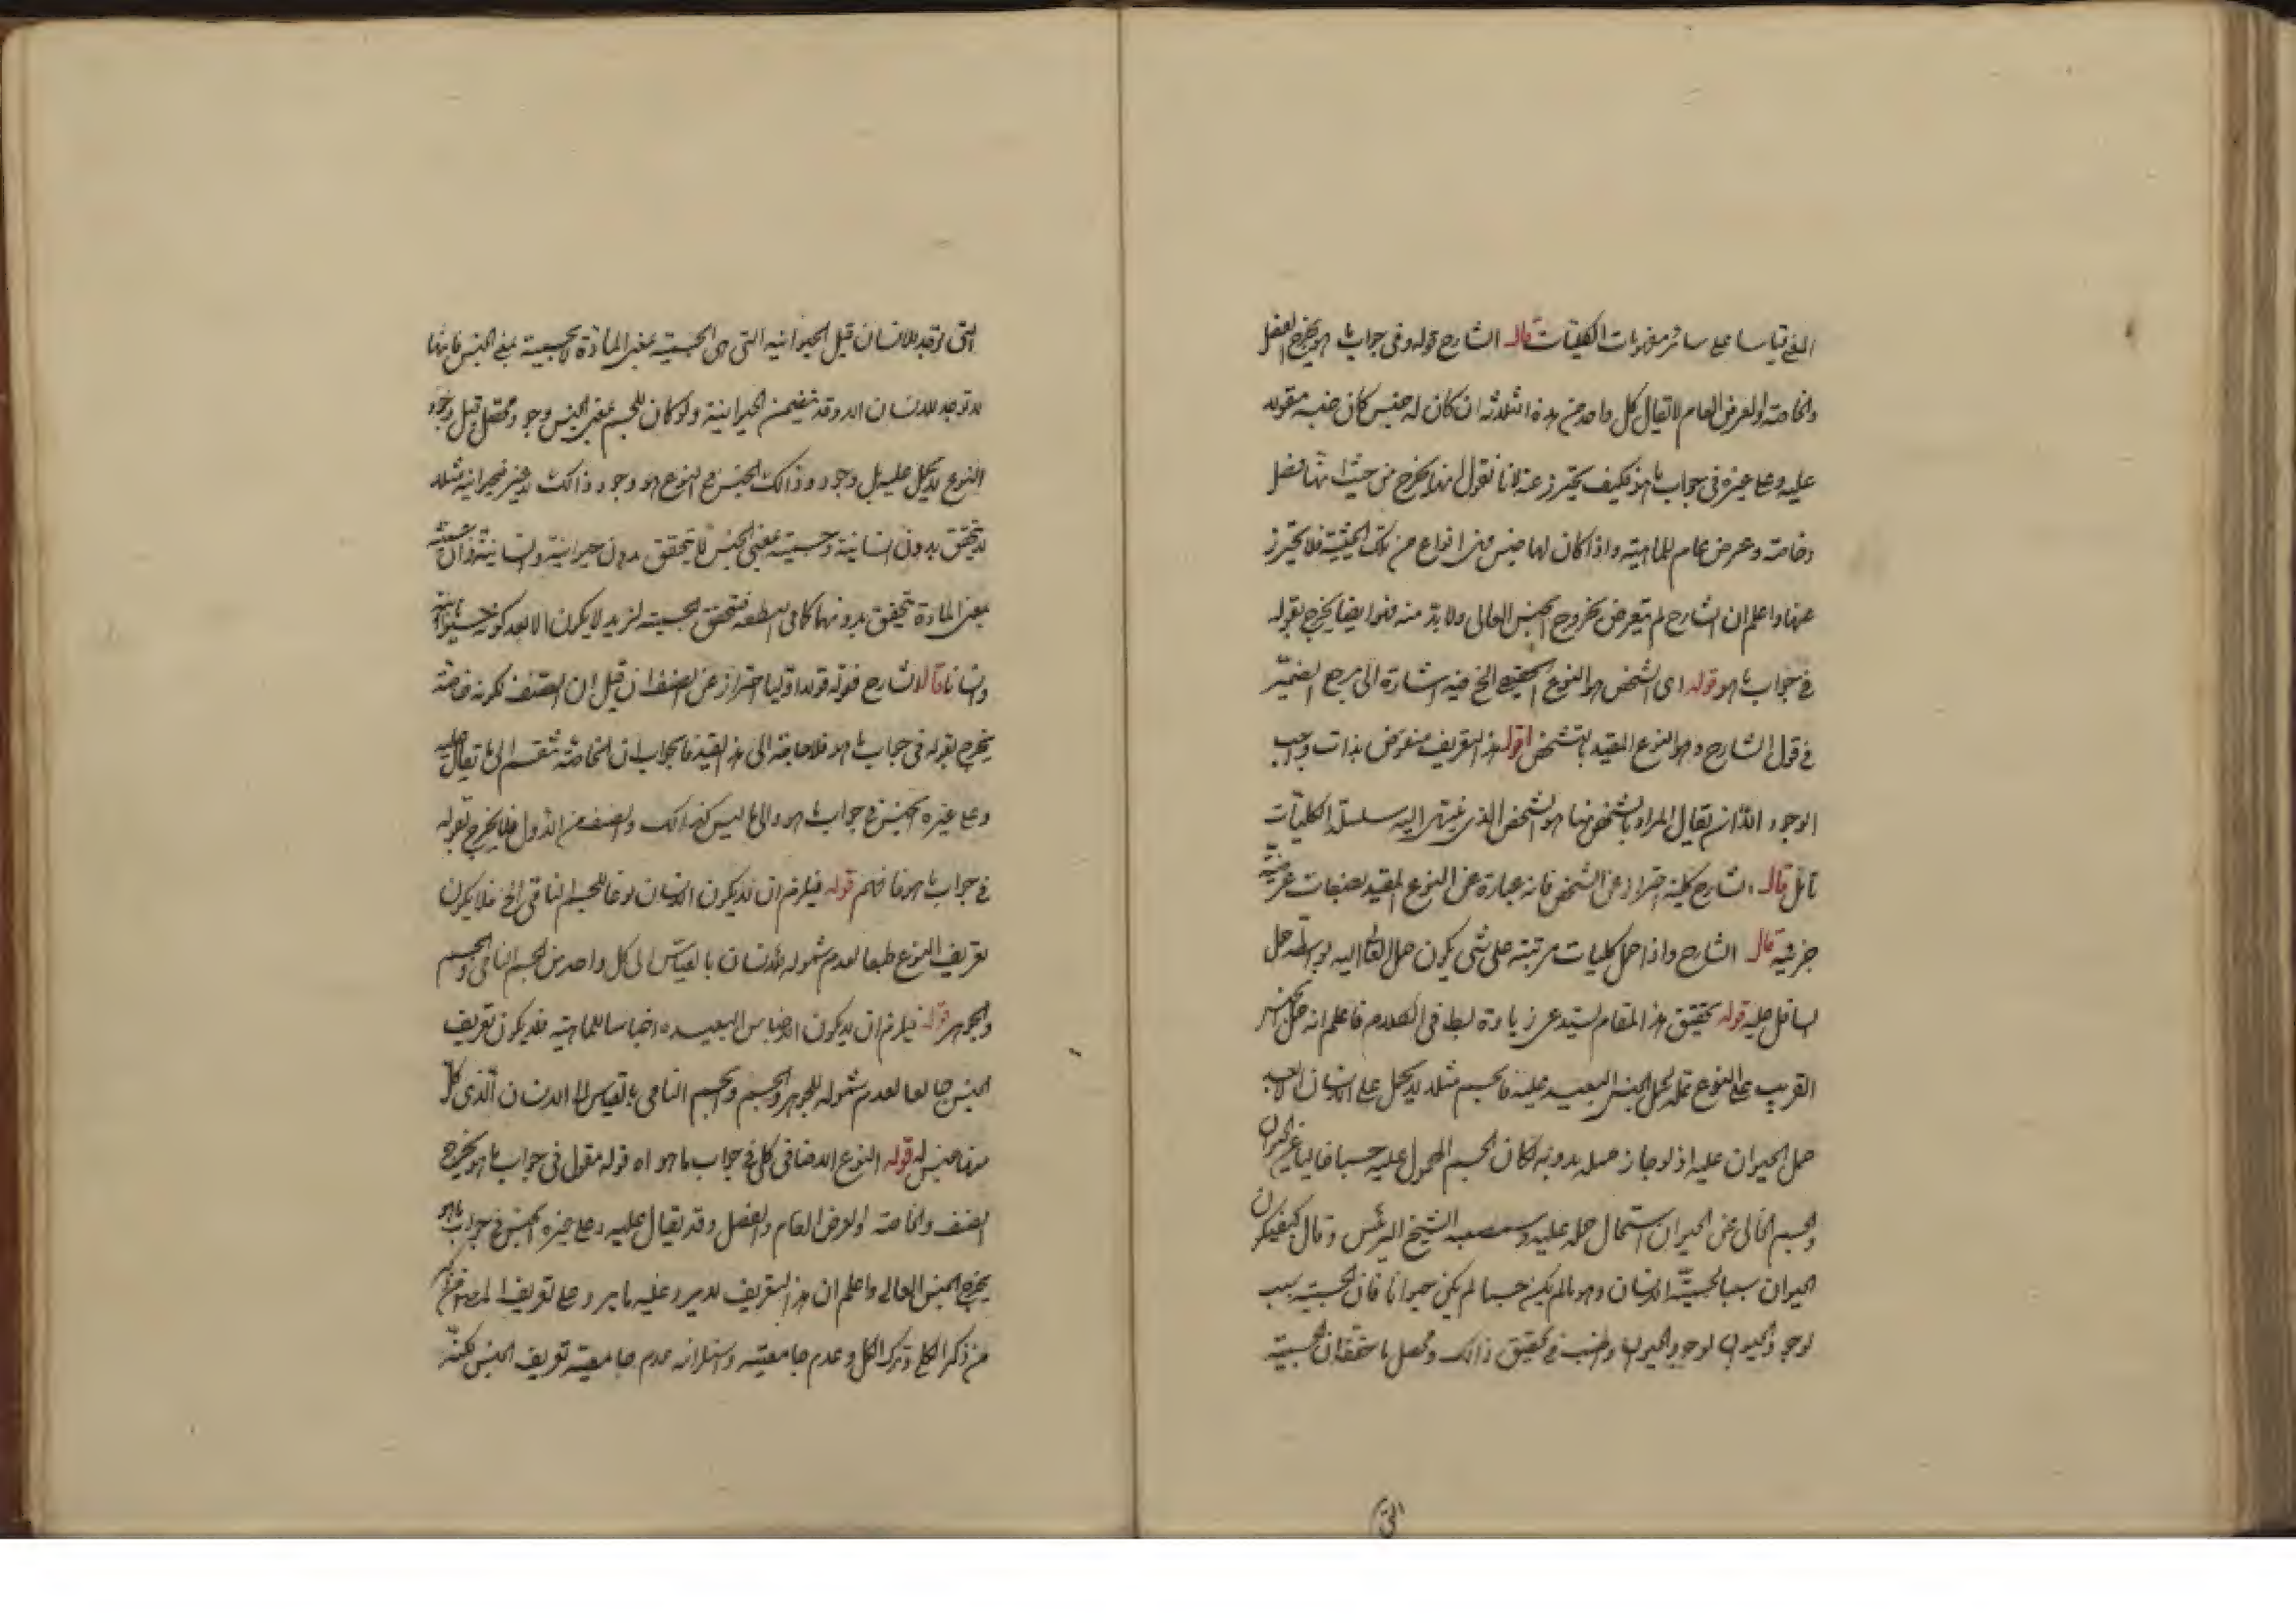 قياسا على سائر مفهومات الكليات قال الشارح قوله وفى جواب ما هو يخرج الفصل
والخاصة والعرض العام لا يقال كل واحد من هذه الثلاثة ان كان له جنس كان جنسه مقولا
عليه وعلى غيره فى جواب ما هو فكيف يحترز عنه لانا نقول انها يخرج من حيث انها فصل
وخاصة وعرض عام للماهية واذا كان لها جنس فهى انواع من تلك الحيثية فلا يحترز
عنها واعلم ان الشارح لم يتعرض بخروج الجنس العالى ولا بد منه فهو ايضا يخرج بقوله
فى جواب ما هو قوله اى الشخص هو النوع الحقيقى الخ فيه اشارة الى مرجع الضمير
فى قول الشارح وهو النوع المقيد بالتشخص اقول هذا التعريف منقوض بذات واجب
الوجود الا ان يقال المراد بالشخص هنا هو الشخص الذى ينتهى اليه سلسلة الكليات
تأمل قال الشارح كلية احتراز عن الشخص فانه عبارة عن النوع المقيد بصفات عرضية
جزئية قال الشارح واذا حمل كليات مرتبة على شئ يكون حمل العالى اليه بواسطة حمل
السافل عليه قوله تحقيق هذا المقام يستدعى زيادة بسط فى الكلام فاعلم انه حمل الجنس
القريب على النوع علة لحمل الجنس البعيد عليه فالجسم مثلا لا يحمل على الانسان الا بعد
حمل الحيوان عليه اذ لو جاز حمله بدونه لكان الجسم المحمول عليه جسما خاليا عن الحيوان
والجسم الخالى عن الحيوان استحال حمله عليه الشيخ الرئيس وقال كيف يكون
الحيوان سببا لجسمية الانسان وهو ما لم يكن جسما لم يكن حيوانا فان الجسمية سبب
لوجود الحيوان فى تحقيق ذالك ومحصل ما حققه ان الجسمية
التى
التى توجد للانسان قبل الحيوانية التى هى الجسمية بمعنى المادة لا الجسمية بمعنى الجنس فانها
لا توجد للانسان الا وقد تتضمن الحيوانية ولو كان للجسم بمعنى الجنس وجود محصل قبل وجود
النوع لا يحمل عليه بل وجود ذالك الجنس فى النوع هو وجود ذالك لا غير فحيوانية مثلا
لا يتحقق بدون انسانية وجسمية بمعنى الجنس لا يتحقق بدون حيوانية وانسانية
بمعنى المادة تتحقق بدونهما كما فى النطفة فتحقق الجسمية لزيد لا يكون الا بعد كونه حيوانا
وانسانا قال الشارح فقوله قولا اوليا احتراز عن الصنف فان قيل ان الصنف لكونه خاصة
يخرج بقوله فى جواب ما هو فلا حاجة الى هذا القيد فالجواب ان الخاصة تنقسم الى ما يقال عليه
وعلى غيره الجنس فى جواب ما هو والى ما ليس كذالك والصنف من الاول فلا يخرج بقوله
فى جواب ما هو فافهم قوله فيلزم ان لا يكون الانسان نوعا للجسم النامى الخ فلا يكون
تعريف النوع جامعا لعدم شموله للانسان بالقياس الى كل واحد من الجسم النامى والجسم
والجوهر قوله فيلزم ان لا يكون الاجناس البعيده اجناسا للماهية فلا يكون تعريف
الجنس جامعا لعدم شموله للجوهر والجسم والجسم النامى بالقياس الى الانسان الذى كل
منها جنس له قوله النوع الاضافى كلى فى جواب ما هو اه قوله مقول فى جواب ما هو يخرج
الصنف والخاصة والعرض العام والفصل وقد يقال عليه وعلى غيره الجنس فى جواب ما هو
يخرج الجنس العالى واعلم ان هذا التعريف لا يرد عليه ما يرد على تعريف المصنف
من ذكر الكلى وترك الكل وعدم جامعيته واستلزامه عدم جامعية تعريف الجنس لكنه